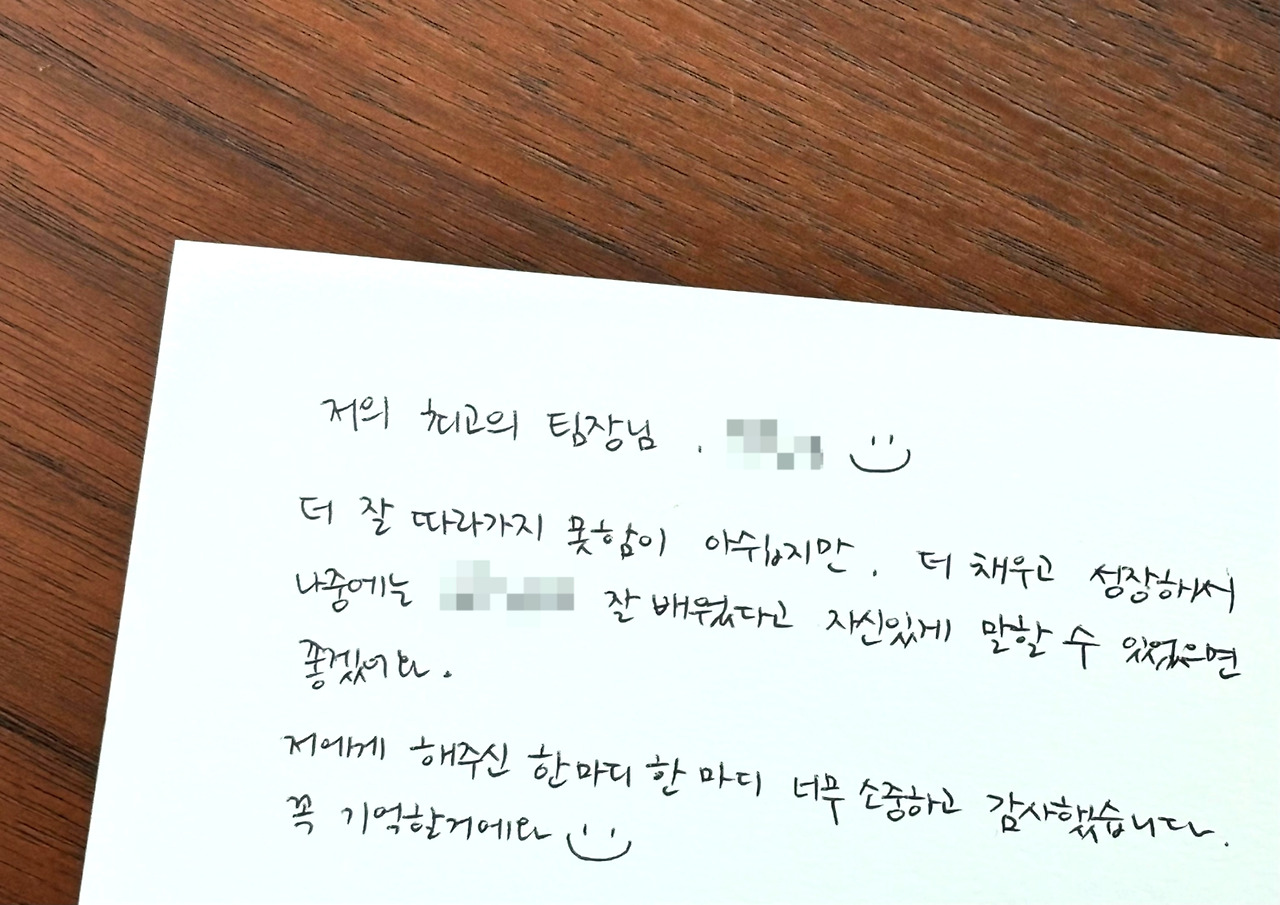 저의 최고의 팀장님,
더 잘 따라가지 못함이 아쉽지만, 더 채우고 성장해서
나중에는 잘 배웠다고 자신있게 말할 수 있었으면
좋겠어요.
저에게 해주신 한마디 한마디 너무 소중하고 감사했습니다.
꼭 기억할거에요